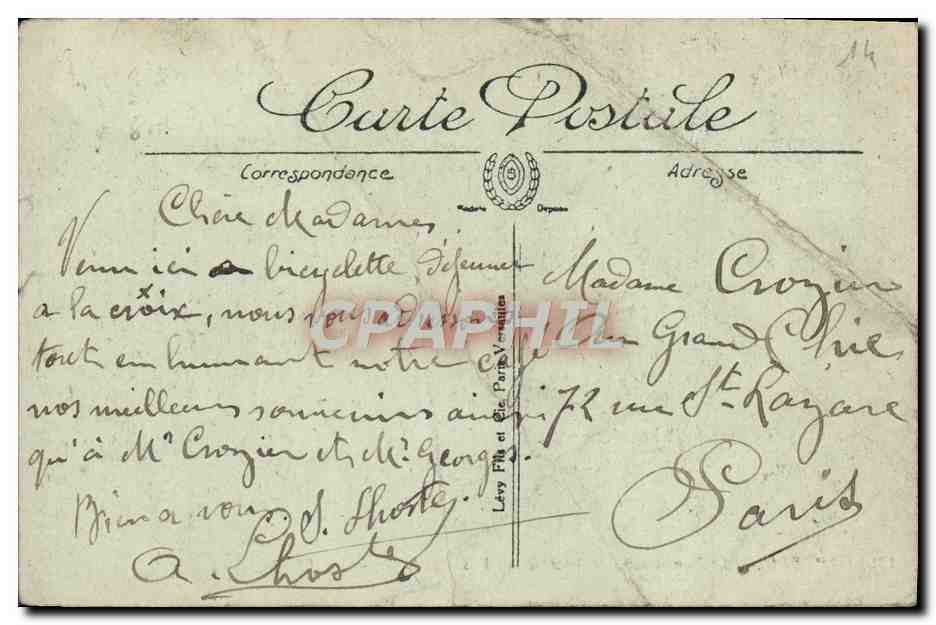 14
Carte Postale
Correspondance
Adresse
Marque Déposée
Chère Madame,
Venu ici à bicyclette, déjeuner
a la croix, nous vous adressons
tout en humant notre café
nos meilleurs souvenirs ainsi
qu'à Mr Crozier et Mr Georges.
Bien a vous. S. Lhoste.
a. Lhoste
Lévy Fils et Cie, Paris-Versailles
Madame Crozier
Au Grand Chic
72 rue St Lazare
Paris
CPAPHIL